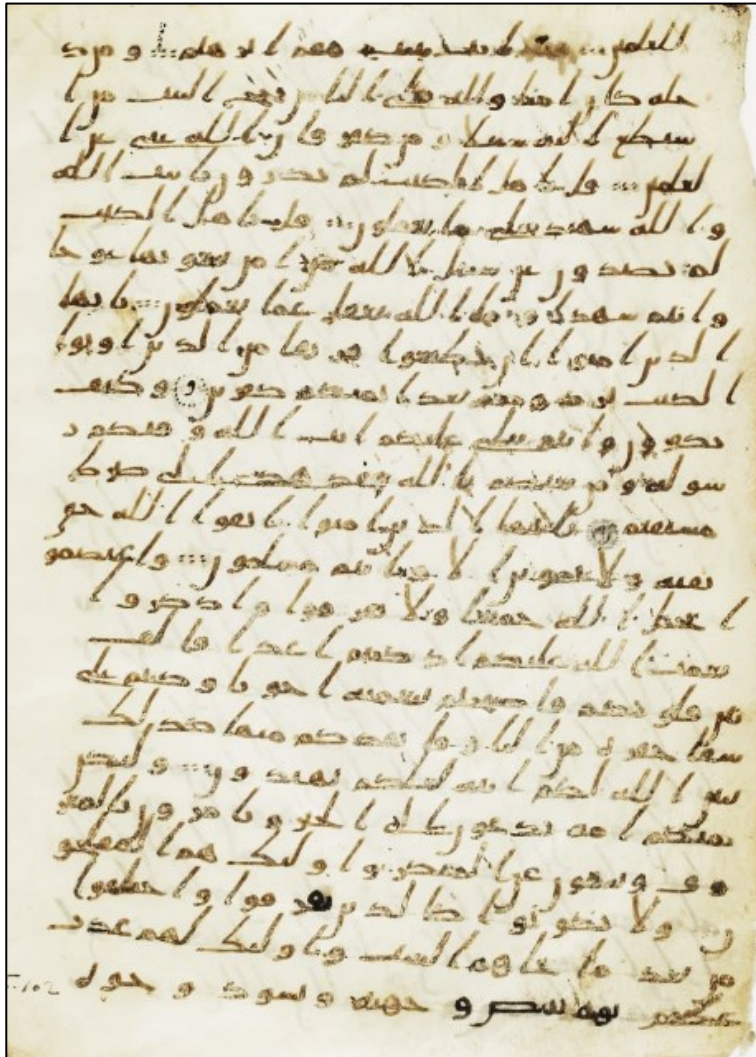 للعلمين فيه ايت بينت مقم ابرهيم ومن د
خله كان امنا ولله على الناس حج البيت من ا
ستطع اليه سبيلا ومن كفر فان الله غني عن ا
لعلمين قل يا هل الكتب لم تكفرون بايت الله
والله شهيد على ما تعملون قل يا هل الكتب
لم تصدون عن سبيل الله من امن تبغونها عوجا
وانتم شهدا وما الله بغفل عما تعملون يايها
الذين امنوا ان تطيعوا فريقا من الذين اوتوا
الكتب يردوكم بعد ايمنكم كفرين وكيف
تكفرون وانتم تتلى عليكم ايت الله وفيكم ر
سوله ومن يعتصم بالله فقد هدي الى صرط
مستقيم يايها الذين امنوا اتقوا الله حق
تقته ولا تموتن الا وانتم مسلمون واعتصمو
ا بحبل الله جميعا ولا تفرقوا واذكروا
نعمت الله عليكم اذ كنتم اعدا فالف
بين قلوبكم فاصبحتم بنعمته اخونا وكنتم على
شفا حفرة من النار فانقذكم منها كذلك
يبين الله لكم ايته لعلكم تهتدون ولتكن
منكم امة يدعون الى الخير ويامرون بالمعر
وف وينهون عن المنكر واوليك هم المفلحو
ن ولا تكونوا كالذين تفرقوا واختلفوا
من بعد ما جاهم البينت واوليك لهم عذب
عظيم يوم تبيض وجوه وتسود وجوه